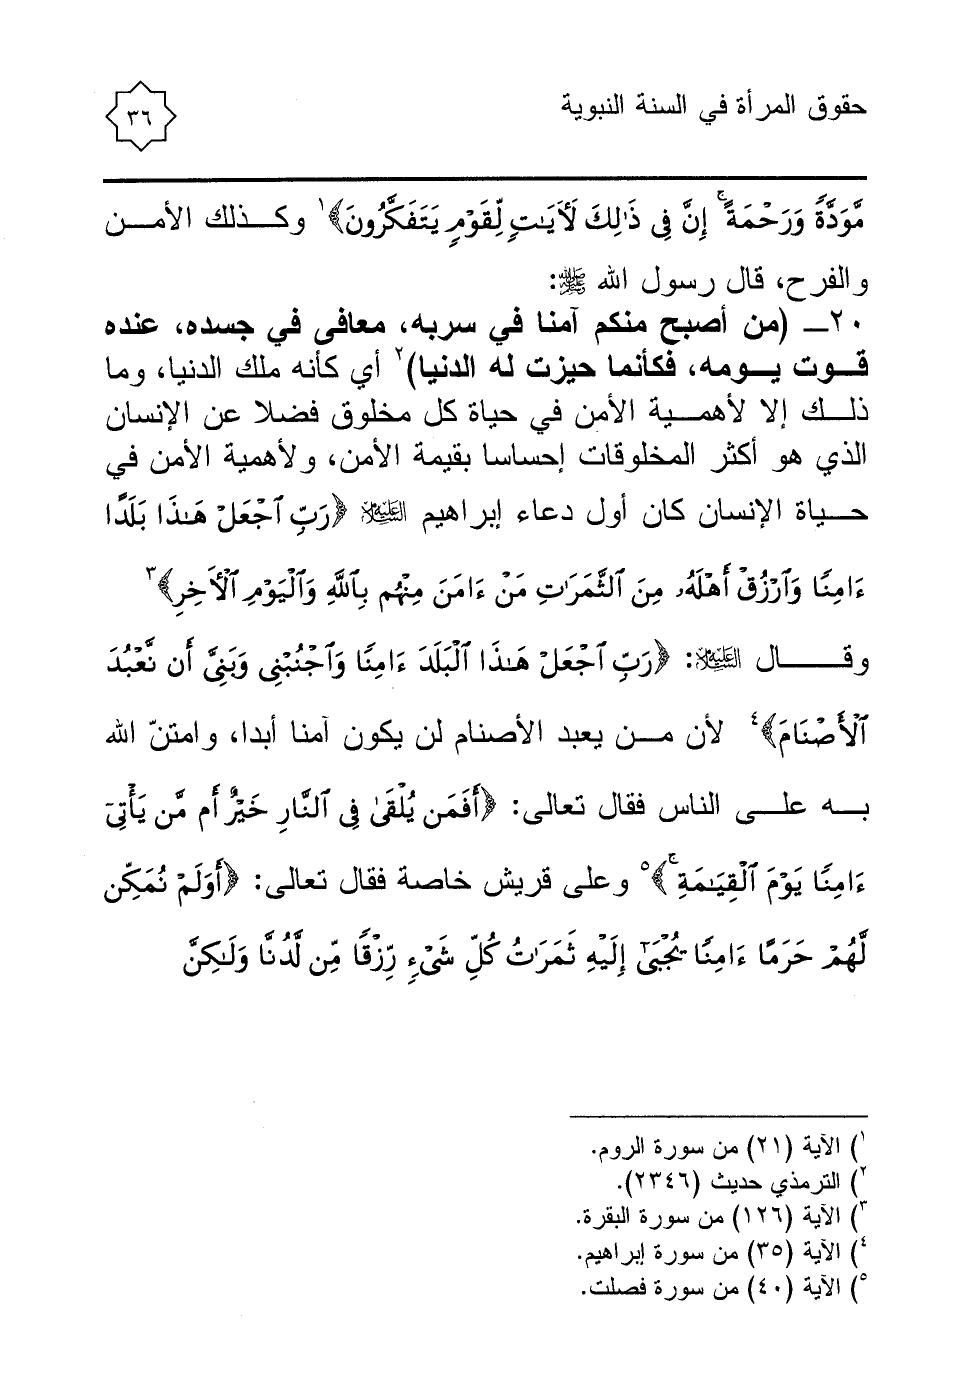 حقوق المرأة في السنة النبوية
٣٦
مَّوَدَّةً وَرَحْمَةً ۚ إِنَّ فِى ذَٰلِكَ لَأَيَـٰتٍ لِّقَوْمٍ يَتَفَكَّرُونَ﴾١ وكـذلك الأمـن
والفرح، قال رسول الله ﷺ:
٢٠ـ (من أصبح منكم آمنا في سربه، معافى في جسده، عنده
قـوت يـومه، فكأنما حيزت له الدنيا)٢ أي كأنه ملك الدنيا، وما
ذلـك إلا لأهمـية الأمن في حياة كل مخلوق فضلا عن الإنسان
الذي هو أكثر المخلوقات إحساسا بقيمة الأمن، ولأهمية الأمن في
حـياة الإنسان كان أول دعاء إبراهيم العَلَيْه السلام ﴿رَبِّ ٱجْعَلْ هَـٰذَا بَلَدًا
ءَامِنًا وَٱرْزُقْ أَهْلَهُۥ مِنَ ٱلثَّمَرَٰتِ مَنْ ءَامَنَ مِنْهُم بِٱللَّهِ وَٱلْيَوْمِ ٱلْأَخِرِ﴾٣
وقـال العَلَيْه السلام: ﴿رَبِّ ٱجْعَلْ هَـٰذَا ٱلْبَلَدَ ءَامِنًا وَٱجْنُبْنِى وَبَنِىَّ أَن نَّعْبُدَ
ٱلْأَصْنَامَ﴾٤ لأن مـن يعبد الأصنام لن يكون آمنا أبدا، وامتنّ الله
بـه علـى الناس فقال تعالى: ﴿أَفَمَن يُلْقَىٰ فِى ٱلنَّارِ خَيْرٌ أَم مَّن يَأْتِىٓ
ءَامِنًا يَوْمَ ٱلْقِيَـٰمَةِ ۚ﴾٥ وعلى قريش خاصة فقال تعالى: ﴿أَوَلَمْ نُمَكِّن
لَّهُمْ حَرَمًا ءَامِنًا يُجْبَىٰٓ إِلَيْهِ ثَمَرَٰتُ كُلِّ شَىْءٍ رِّزْقًا مِّن لَّدُنَّا وَلَـٰكِنَّ
١) الآية (٢١) من سورة الروم.
٢) الترمذي حديث (٢٣٤٦).
٣) الآية (١٢٦) من سورة البقرة.
٤) الآية (٣٥) من سورة إبراهيم.
٥) الآية (٤٠) من سورة فصلت.